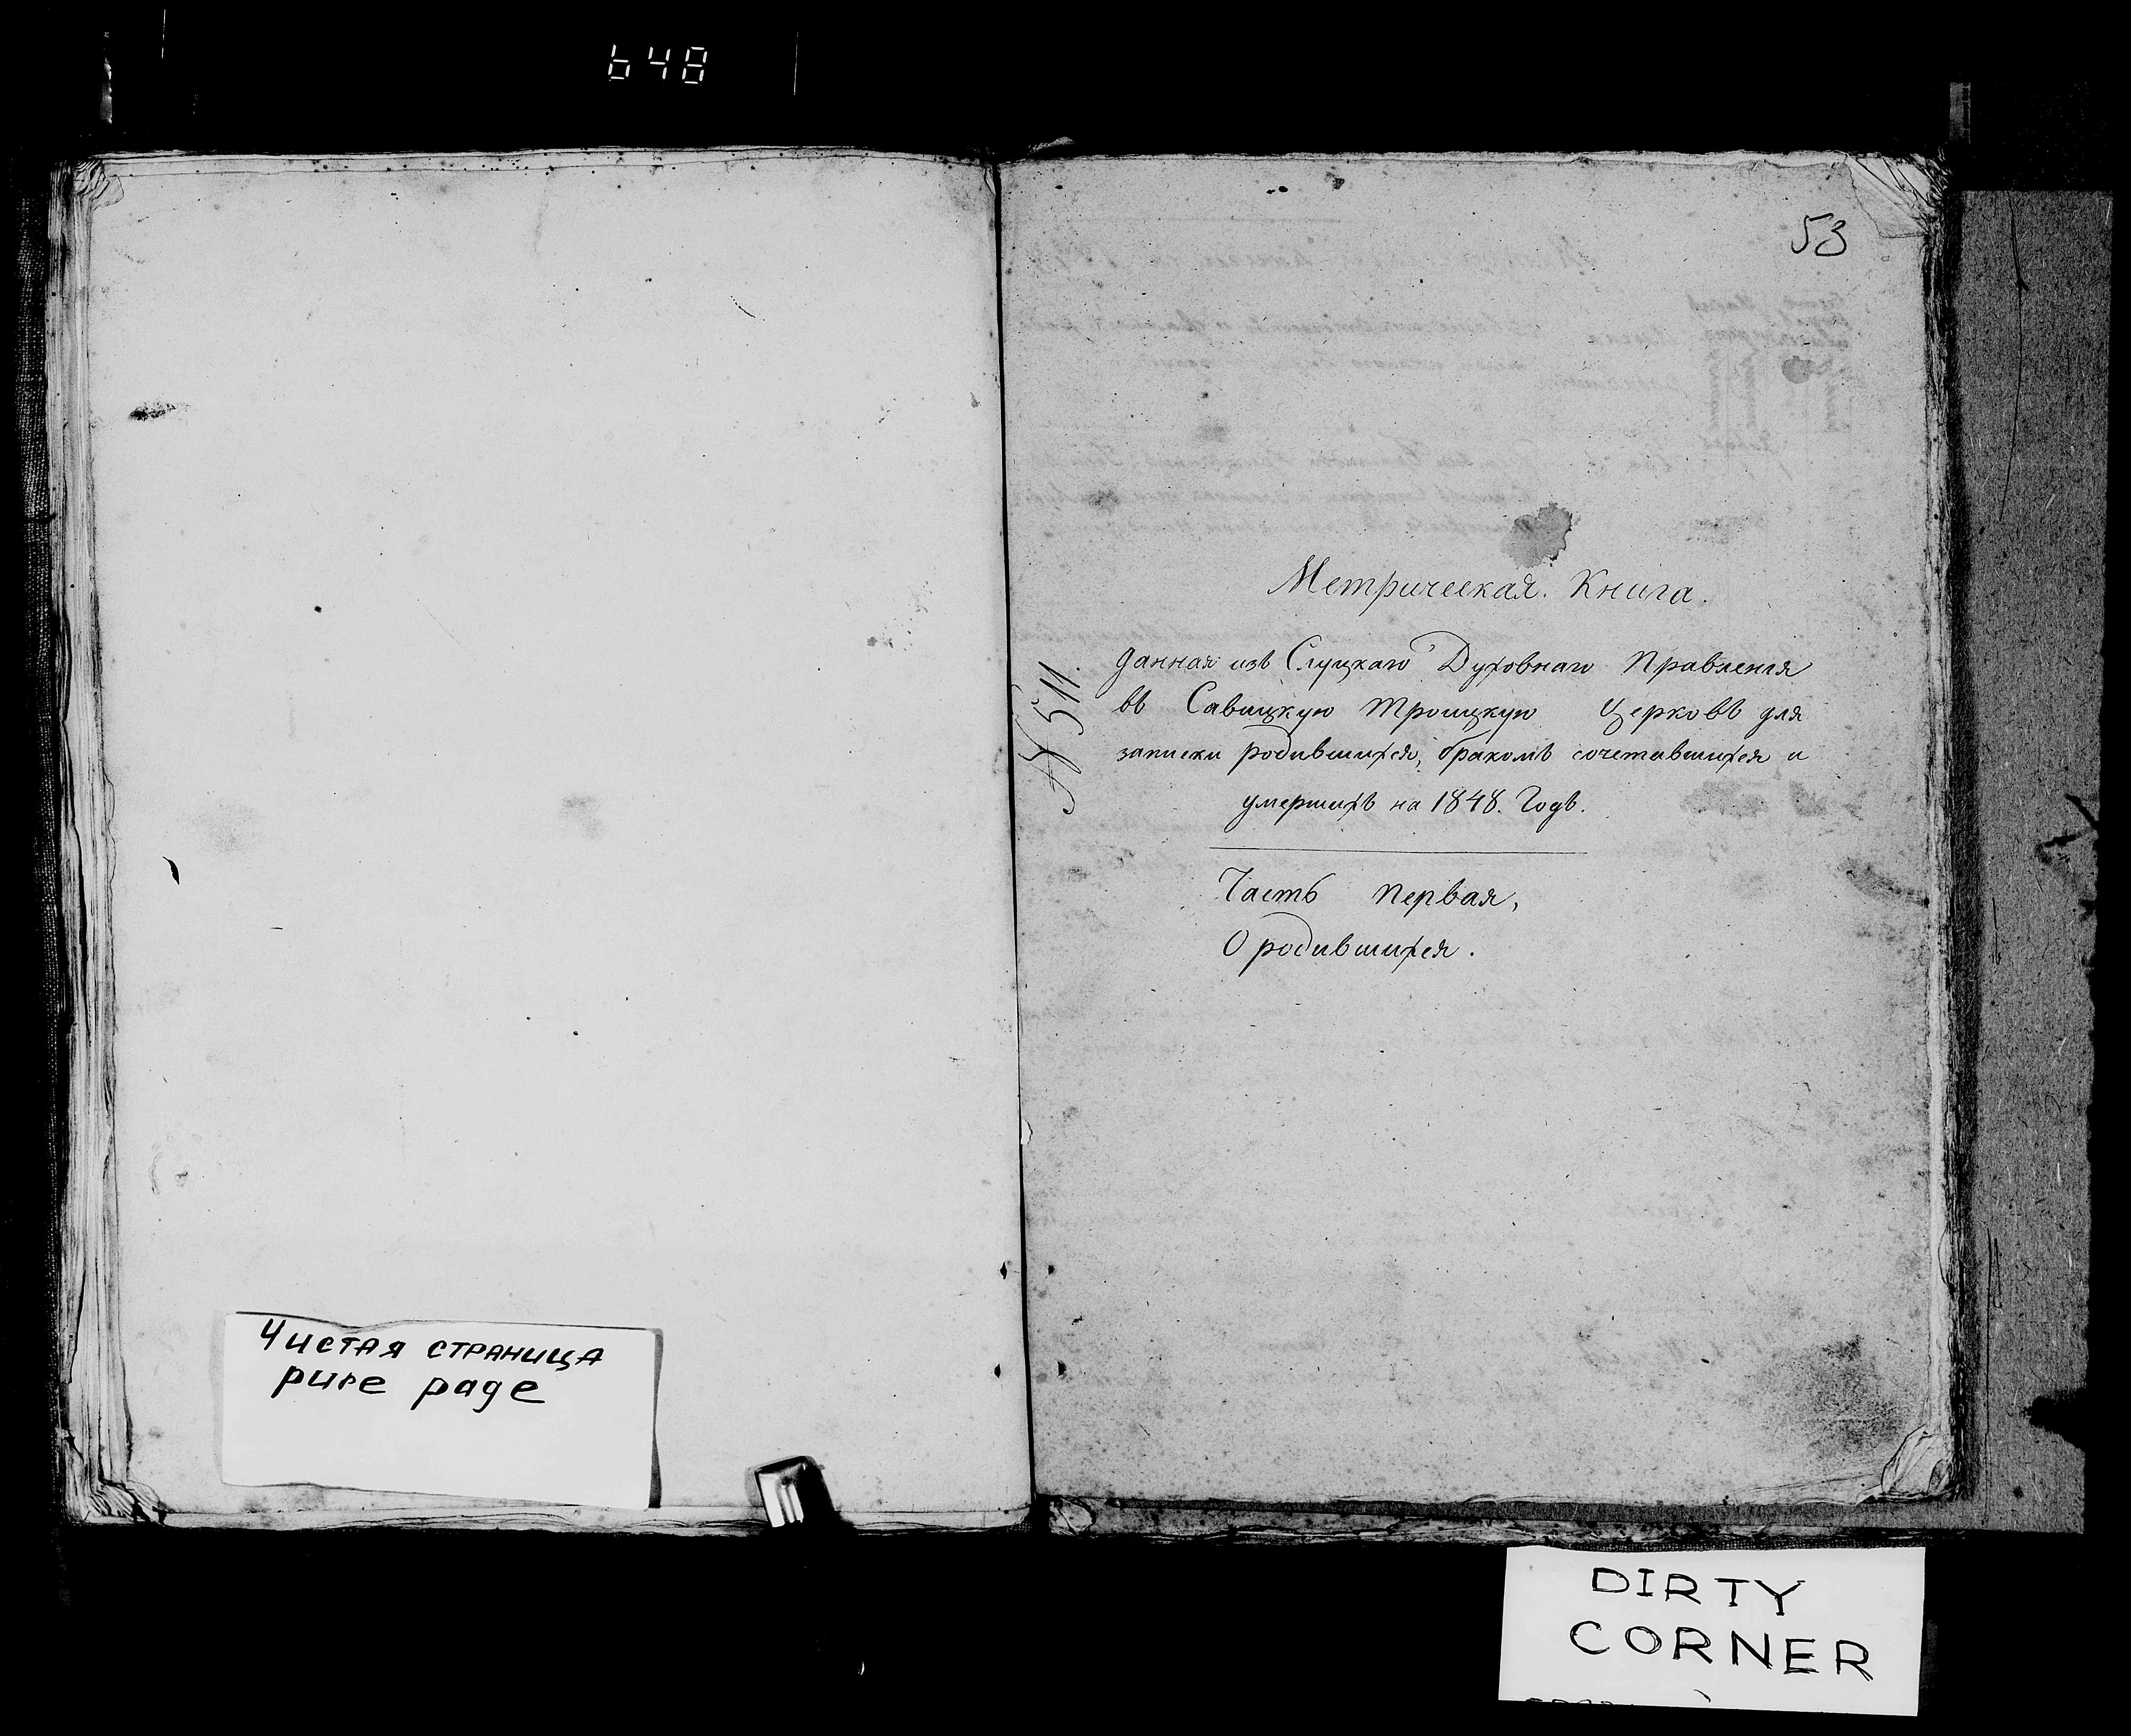 648
53
Метрическая. Книга.
данная изъ Слуцкаго Духовнаго Правленія
въ Савицкую Троицкую Церковъ для
записки родившихся, бракомъ сочетавшихся и
умершихъ на 1848. Годъ.
№ 511.
Часть Первая,
О родившихся.
Чистая страница
pure page
DIRTY
CORNER